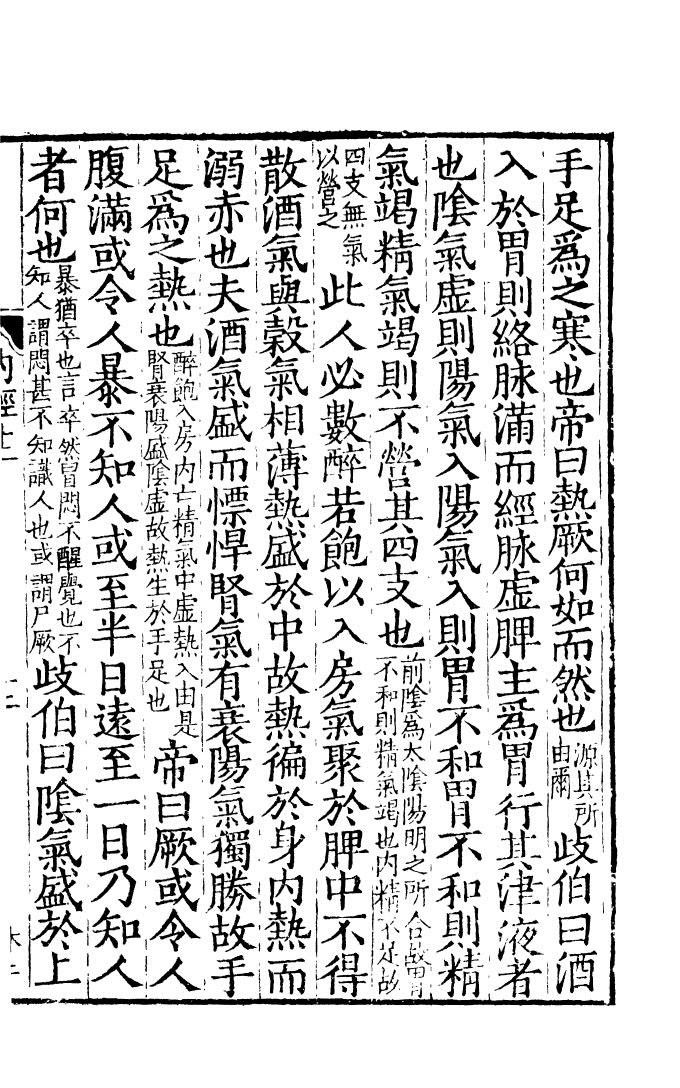 手足爲之寒也帝曰熱厥何如而然也源其所由爾歧伯曰酒
入於胃則絡脉滿而經脉虛脾主爲胃行其津液者
也陰氣虛則陽氣入陽氣入則胃不和胃不和則精
氣竭精氣竭則不營其四支也前陰爲太陰陽明之所合故胃不和則精氣竭也内精不足故
四支無氣以營之此人必數醉若飽以入房氣聚於脾中不得
散酒氣與穀氣相薄熱盛於中故熱徧於身内熱而
溺赤也夫酒氣盛而慓悍腎氣有衰陽氣獨勝故手
足爲之熱也醉飽入房内亡精氣中虛熱入由是腎衰陽盛陰虛故熱生於手足也帝曰厥或令人
腹滿或令人暴不知人或至半日遠至一日乃知人
者何也暴猶卒也言卒然冒悶不醒覺也不知人謂悶甚不知識人也或謂尸厥歧伯曰陰氣盛於上
内經十二